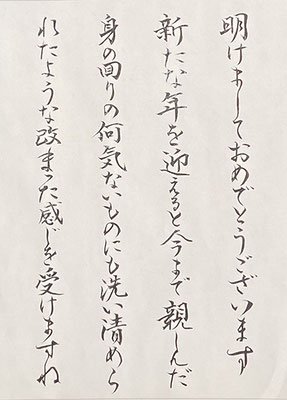 明けましておめでとうございます
新たな年を迎えると今まで親しんだ
身の回りの何気ないものにも洗い清めら
れたような改まった感じを受けますね